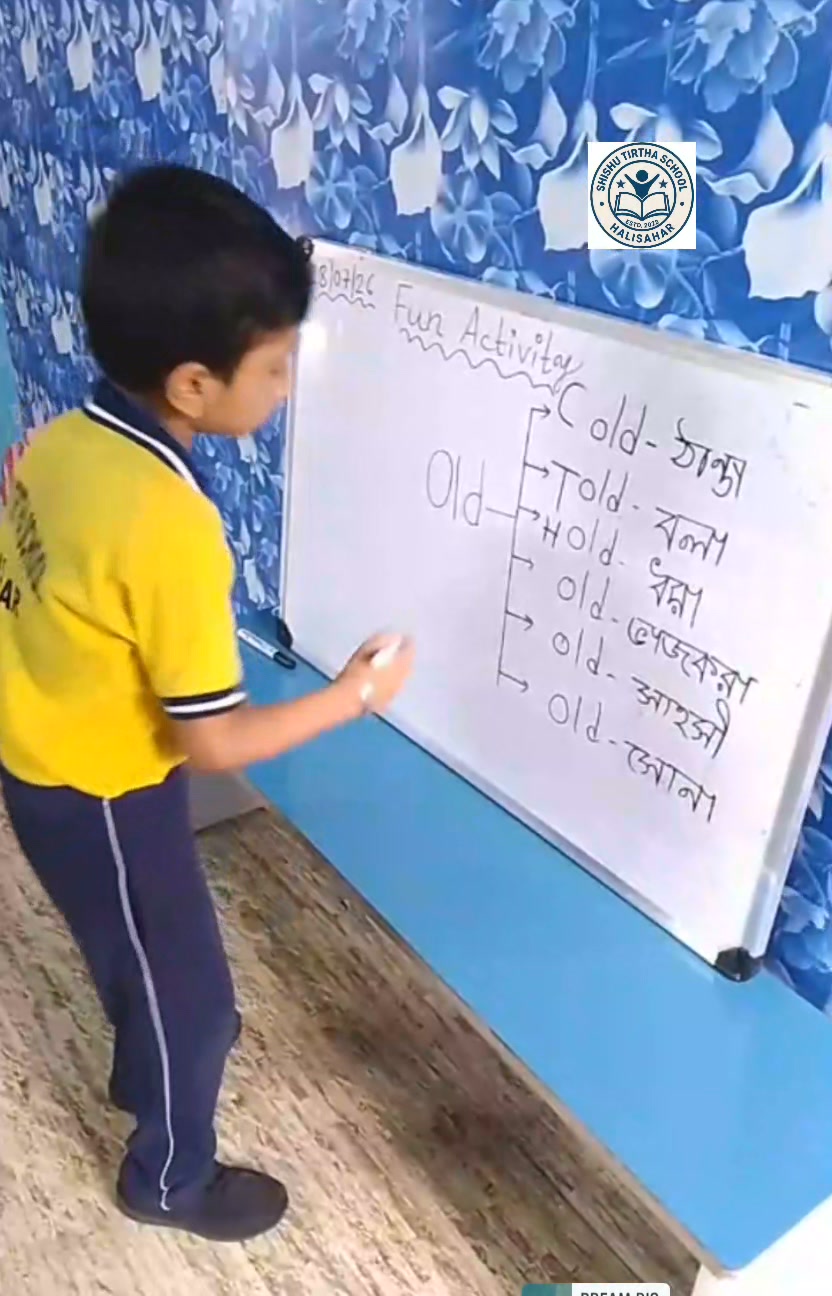 SHISHU TIRTHA SCHOOL
ESTD. 2023
HALISAHAR
18/07/26
Fun Activity
Old
Cold - ঠান্ডা
Told - বলা
Hold - ধরা
old - ভাজকরা
old - সাহসী
old - সোনা